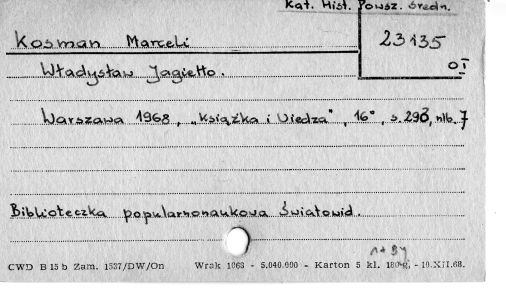 Kat. Hist. Powsz. Średn.
Kosman Marceli
23135
Władysław Jagiełło.
Warszawa 1968, „Książka i Wiedza", 16°, s. 293, nlb. 7
Biblioteczka popularnonaukowa Światowid.
CWD B 15 b Zam. 1537/DW/On Wrak 1063 - 5.040.000 - Karton 5 kl. 180 g. - 10.XII.68.